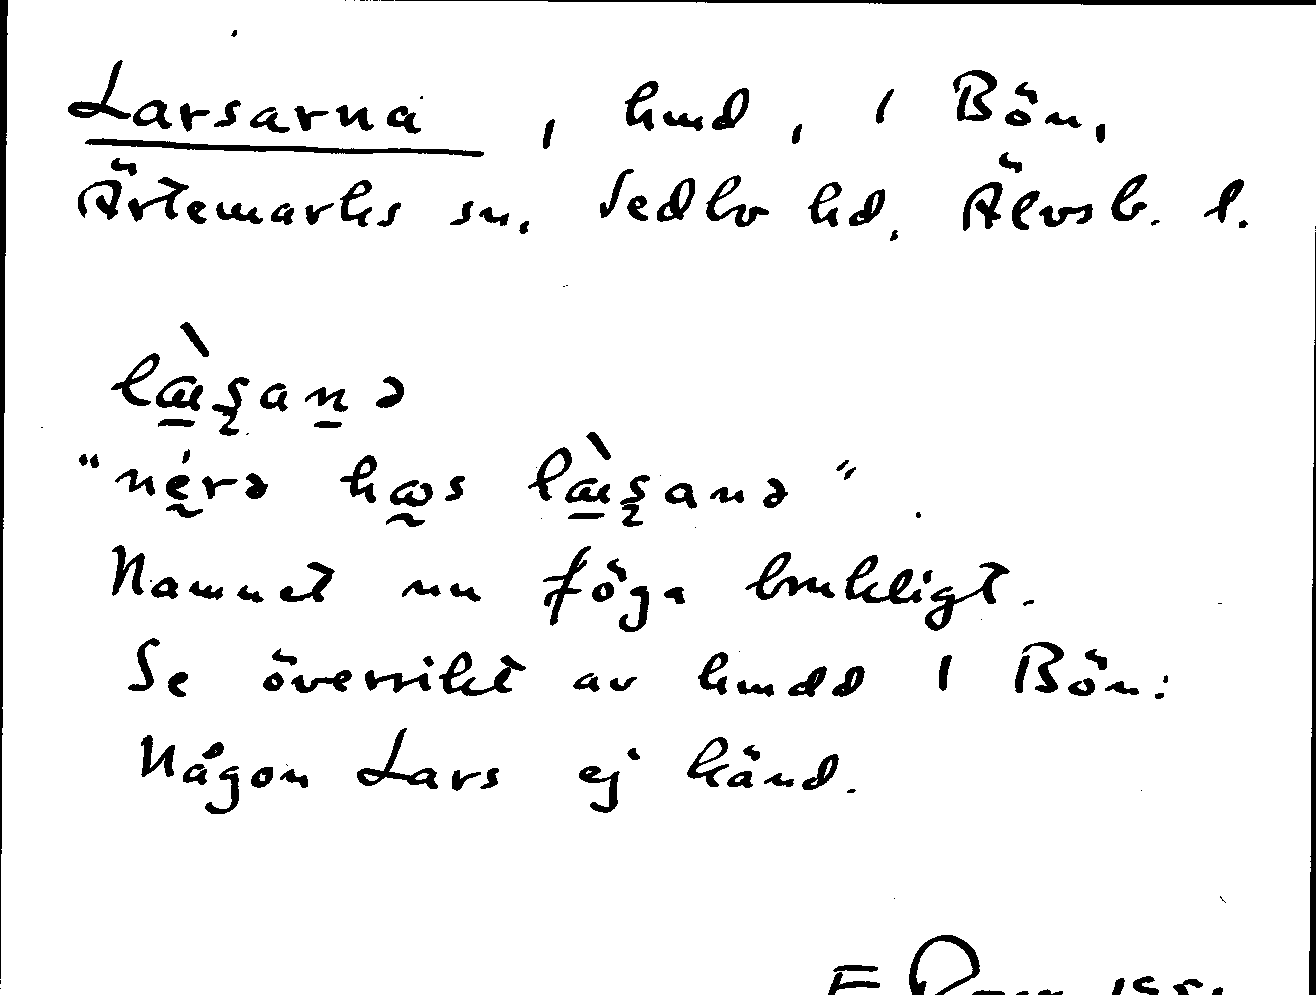 Larsarna, hmd, i Bön,
Ärtemarks sn. Vedbo hd. Älvsb. l.
læ̀ʂanə
"nérə hos læ̀ʂanə".
Namnet nu föga brukligt.
Se översikt av hmdd i Bön:
Någon Lars ej känd.